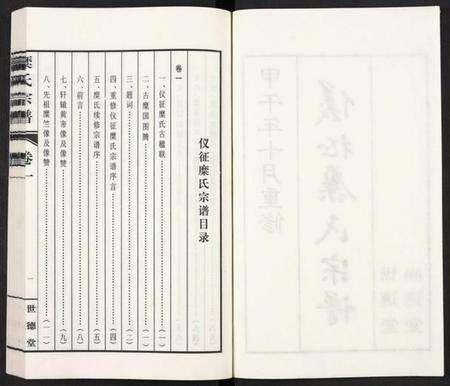 仪征糜氏宗谱目录
卷一
一、仪征糜氏古楹联………(一)
二、古糜国图腾………(一)
三、题词………(二)
四、重修仪征糜氏宗谱序言………(四)
五、糜氏续修宗谱序………(五)
六、前言………(八)
七、轩辕黄帝像及像赞………(九)
八、先祖糜竺像及像赞………(一一)
糜氏宗谱
卷一
一
世德堂
甲午年十月重修
糜氏宗谱
世德堂